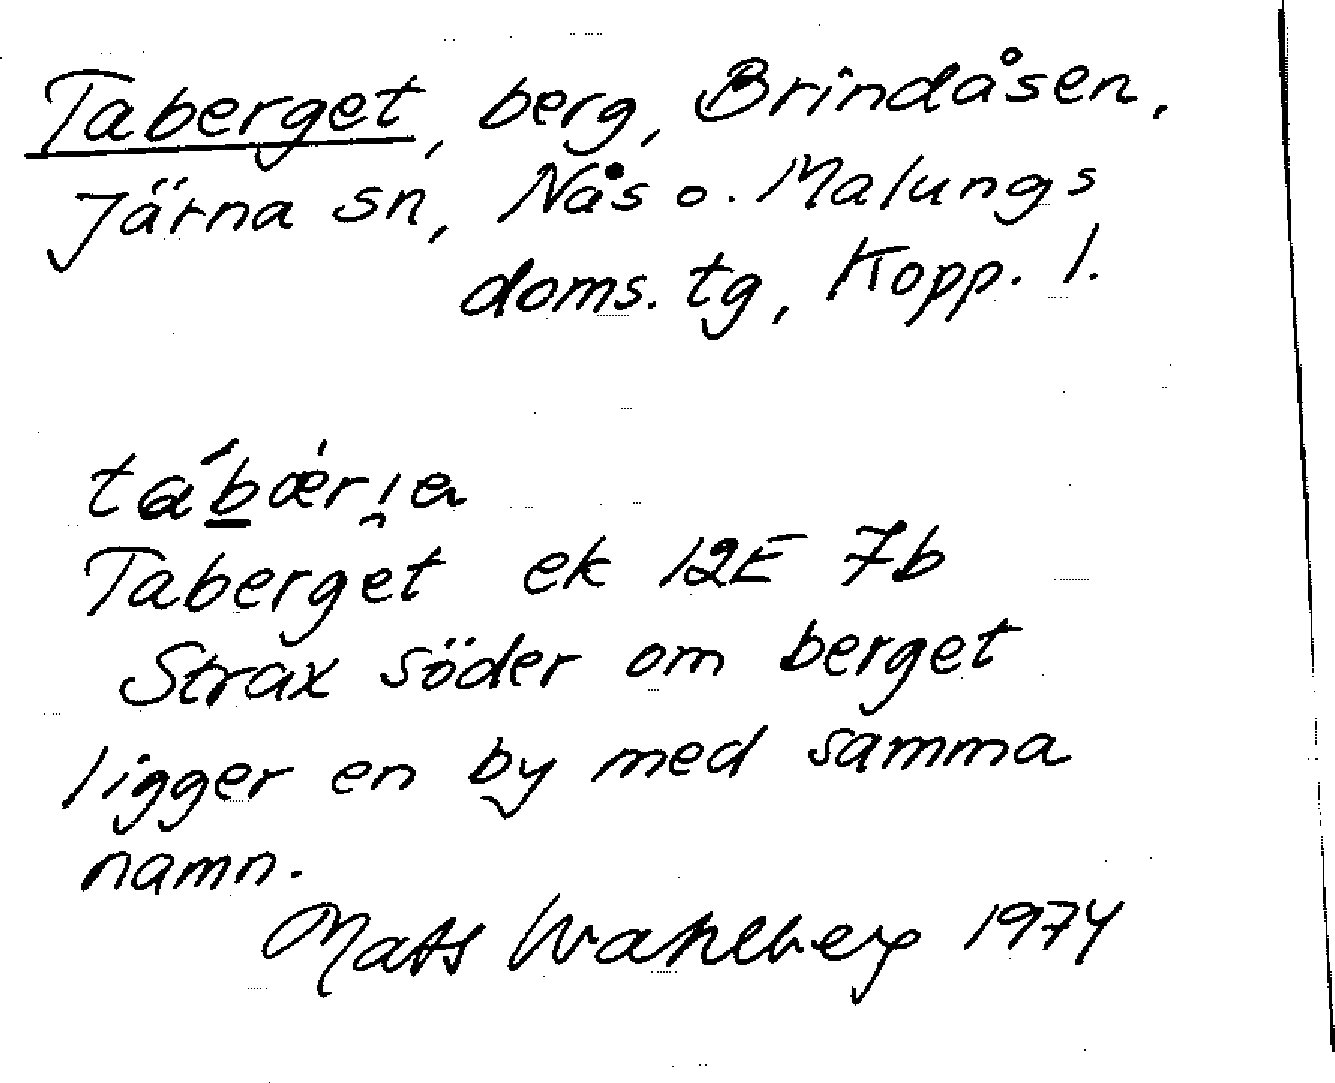 Taberget, berg, Brindåsen,
Järna sn, Nås o. Malungs
doms. tg, Kopp. l.
Taberget ek 12E 7b
Strax söder om berget
ligger en by med samma
namn.
Mats Wahlberg 1974